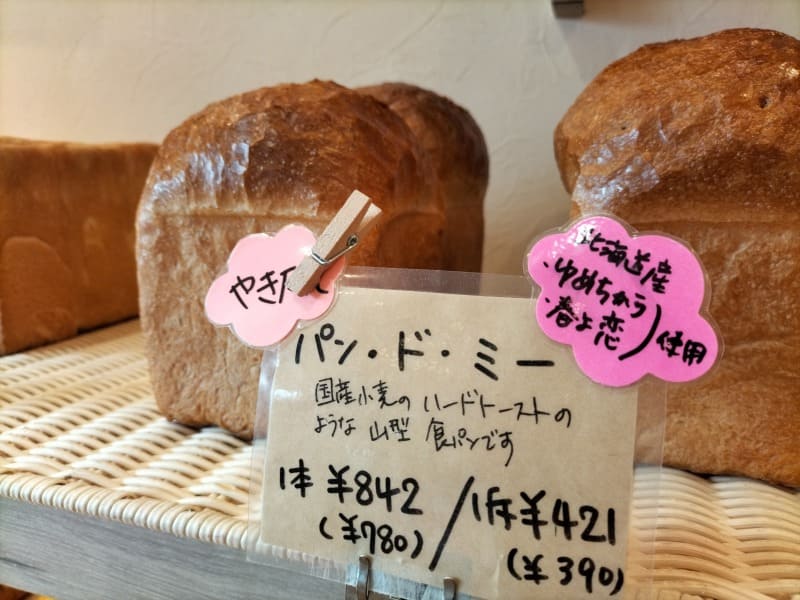 やきたて
北海道産
・ゆめちから
・春よ恋
使用
パン・ド・ミー
国産小麦の ハードトーストの
ような 山型 食パンです
1本 ¥842 / 1斤 ¥421
(¥780) (¥390)